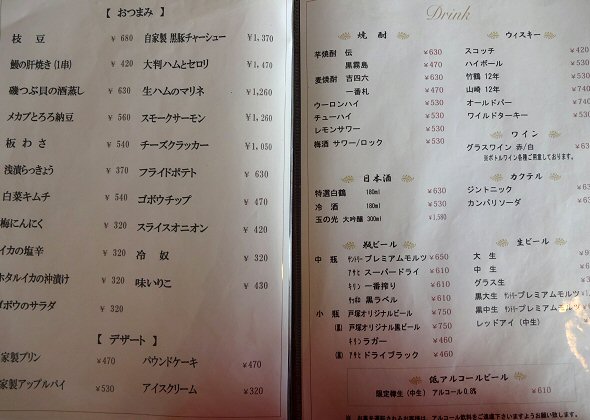 【 おつまみ 】
枝 豆 ¥ 680
鰻の肝焼き (1串) ¥ 420
磯つぶ貝の酒蒸し ¥ 630
メカブとろろ納豆 ¥ 560
板 わさ ¥ 540
浅漬らっきょう ¥ 370
白菜キムチ ¥ 540
梅にんにく ¥ 320
イカの塩辛 ¥ 320
ホタルイカの沖漬け ¥ 320
ゴボウのサラダ ¥ 320
自家製 黒豚チャーシュー ¥1,370
大判ハムとセロリ ¥1,470
生ハムのマリネ ¥1,260
スモークサーモン ¥1,260
チーズクラッカー ¥1,050
フライドポテト ¥ 630
ゴボウチップ ¥ 470
スライスオニオン ¥ 420
冷 奴 ¥ 320
味いりこ ¥ 430
【 デザート 】
家製プリン ¥470
家製アップルパイ ¥530
パウンドケーキ ¥470
アイスクリーム ¥ 320
Drink
焼 酎
芋焼酎 伝 ¥630
黒霧島 ¥470
麦焼酎 吉四六 ¥630
一番札 ¥470
ウーロンハイ ¥530
チューハイ ¥530
レモンサワー ¥530
梅酒 サワー/ロック ¥530
日本酒
特選白鶴 180ml ¥630
冷 酒 180ml ¥530
玉の光 大吟醸 300ml ¥1,580
瓶ビール
中 瓶 サントリープレミアムモルツ ¥650
アサヒ スーパードライ ¥610
キリン 一番搾り ¥610
サッポロ 黒ラベル ¥610
小 瓶 戸塚オリジナルビール ¥750
戸塚オリジナル黒ビール ¥750
キリンラガー ¥460
アサヒドライブラック ¥460
ウィスキー
スコッチ ¥420
ハイボール ¥530
竹鶴 12年 ¥530
山崎 12年 ¥740
オールドパー ¥740
ワイルドターキー ¥530
ワイン
グラスワイン 赤/白 ¥
※ボトルワイン各種ご用意しております。
カクテル
ジントニック ¥
カンパリソーダ ¥
生ビール
大 生
中 生 ¥
グラス生 ¥
黒大生 サントリープレミアムモルツ ¥1
黒中生 サントリープレミアムモルツ ¥
レッドアイ (中生) ¥
低アルコールビール
限定樽生 (中生) アルコール0.8% ¥610